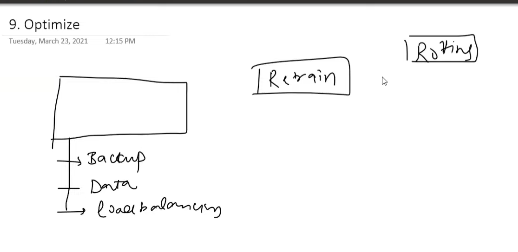 9. Optimize
Tuesday, March 23, 2021 12:15 PM
Rotting
Retrain
Backup
Data
loadbalancing